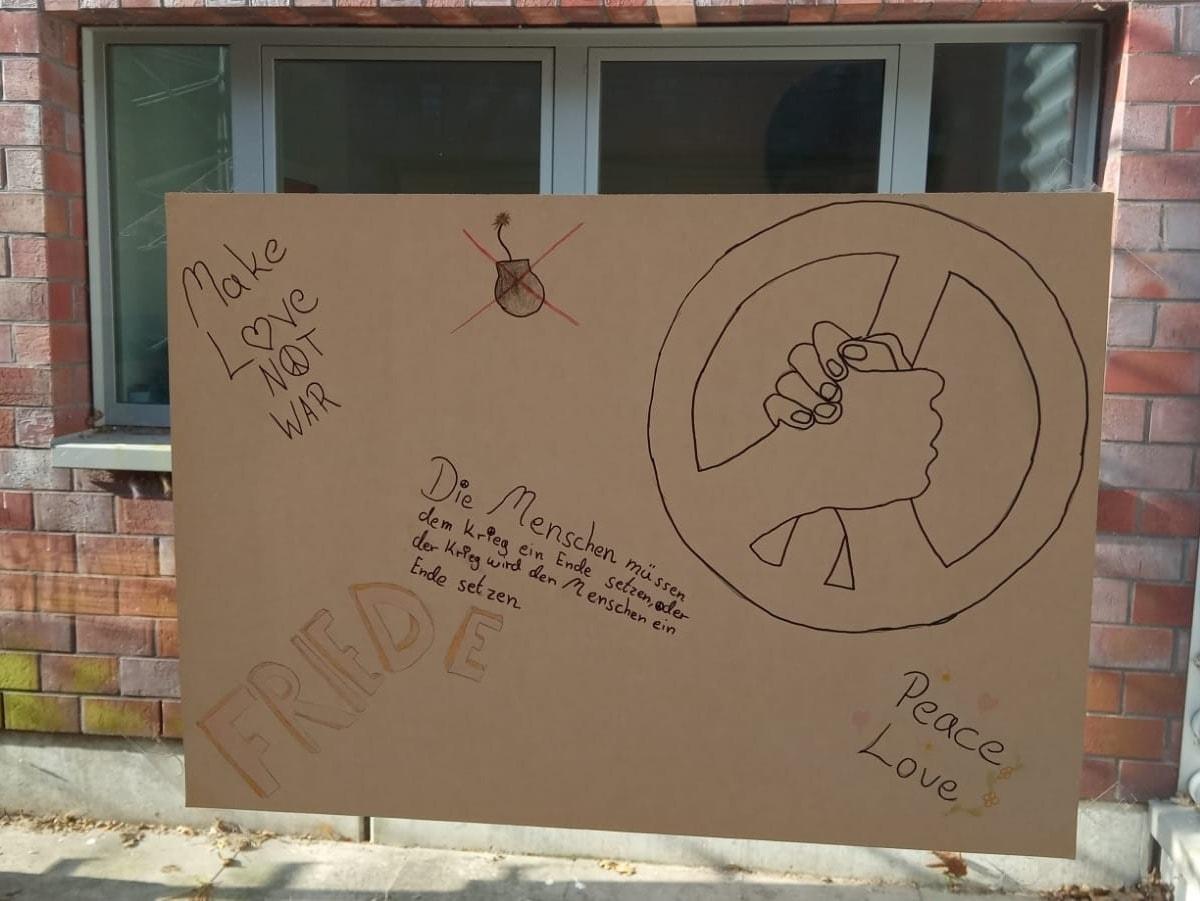 Make
Love
NOT
WAR
Die Menschen müssen
dem Krieg ein Ende setzen, oder
der Krieg wird den Menschen ein
Ende setzen
FRIEDE
Peace
Love